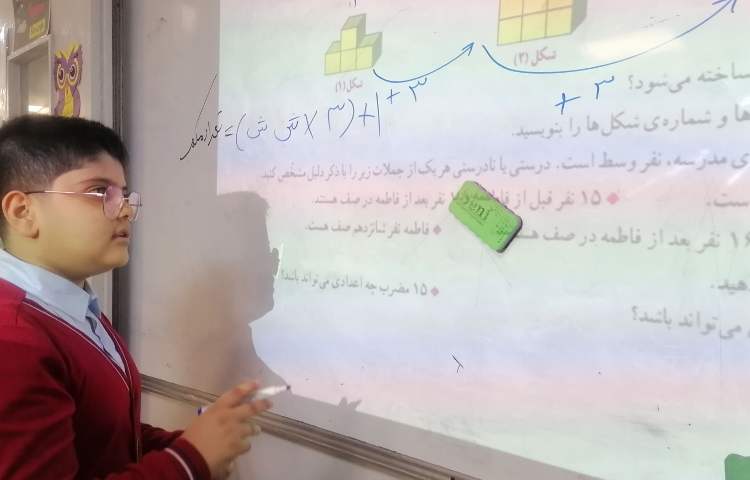 شکل (۱)
شکل (۲)
+ ۳
+ ۳
ساخته می‌شود؟
= (۳ × شکل ش) + ۱
ها و شماره‌ی شکل‌ها را بنویسید.
ی مدرسه، نفر وسط است. درستی یا نادرستی هر یک از جملات زیر را با ذکر دلیل مشخص کنید.
است.
◆ ۱۵ نفر قبل از فاطمه نفر بعد از فاطمه در صف هستند.
نفر بعد از فاطمه در صف
◆ فاطمه نفر شانزدهم صف هست.
yeni
هید.
◆ ۱۵ مضرب چه اعدادی می‌تواند باشد؟
می‌تواند باشد؟